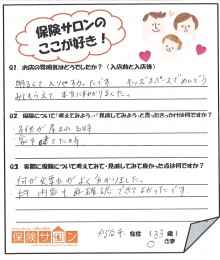 保険サロンの
ここが好き！
Q1 お店の雰囲気はどうでしたか？（入店前と入店後）
明るくて入りやすかったです キッズスペースでめんどう
みてもらえて 本当に助かりました。
Q2 保険について「考えてみよう」・「見直してみよう」と思ったきっかけは何ですか？
・子供が産まれる時
・家を建てた時
Q3 実際に保険について考えてみて・見直してみて良かった点は何ですか？
何が必要か よく分かりました。
内容も再確認できてよかったです。
保険サロン
刈谷市 在住 （33 歳）
さま